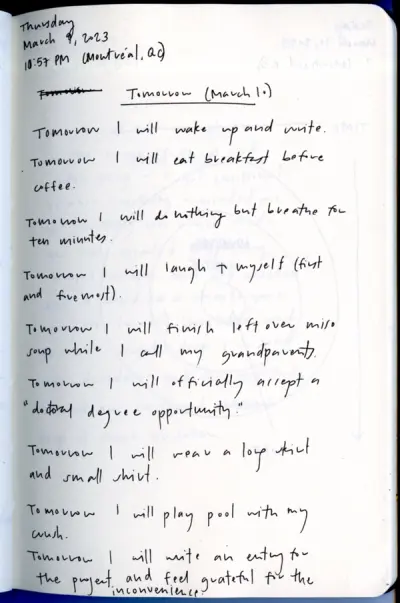 Thursday
March 9, 2023
10:57 PM (Montréal, QC)
Tomorrow
Tomorrow (March 10)
Tomorrow I will wake up and write.
Tomorrow I will eat breakfast before
coffee.
Tomorrow I will do nothing but breathe for
ten minutes.
Tomorrow I will laugh @ myself (first
and foremost).
Tomorrow I will finish left over miso
soup while I call my grandparents.
Tomorrow I will officially accept a
"doctoral degree opportunity."
Tomorrow I will wear a long skirt
and small shirt.
Tomorrow I will play pool with my
crush.
Tomorrow I will write an entry for
the project, and feel grateful for the
inconvenience.